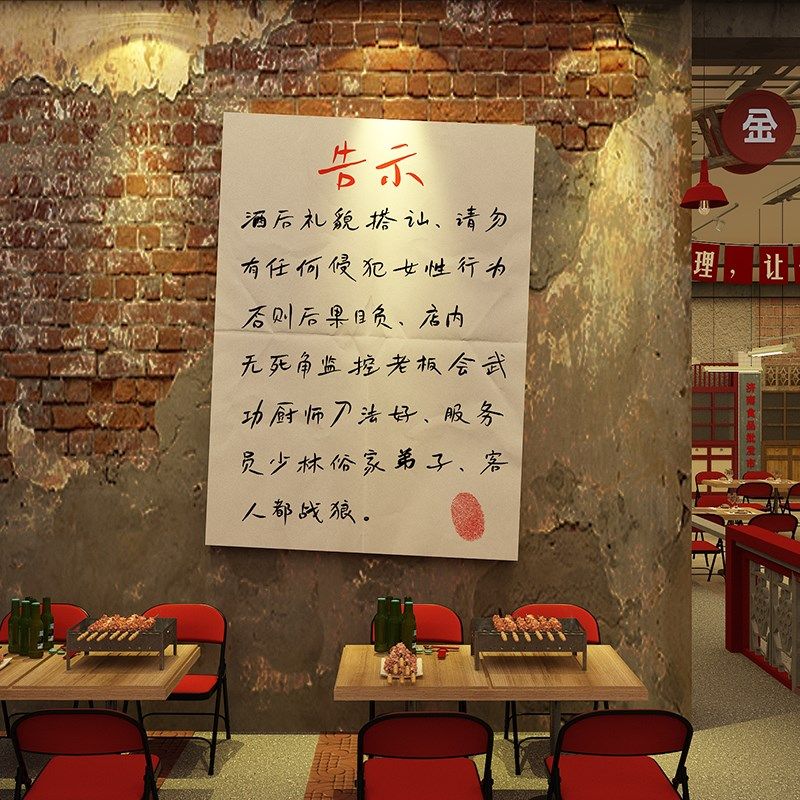 告示
酒后礼貌搭讪、请勿
有任何侵犯女性行为
否则后果自负、店内
无死角监控老板会武
功厨师刀法好、服务
员少林俗家弟子、客
人都战狼。
金
理，让
济南食品批发市